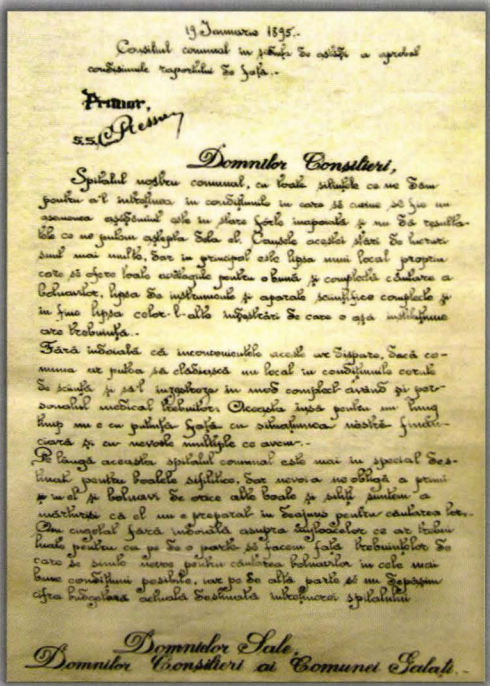 19 Ianuarie 1895.-
Consiliul comunal în ședința de astăzi a aprobat
condițiunile raportului de față.-
Primar,
ss. C Ressu
Domnilor Consilieri,
Spitalul nostru comunal, cu toate silințele ce ne dăm
pentru a'l întreținea în condițiunile în care să cuvine să fie un
asemenea așezământ este în stare forte înapoiată și nu dă resulta-
tele ce ne putem aștepta dela el. Causele acestei stări de lucruri
sunt mai multe, dar în principal este lipsa unui local propriu
care să ofere toate avantagiile pentru o bună și completă căutare a
bolnavilor, lipsa de instrumente și aparate sciințifice complecte și
în fine lipsa celor-l-alte înzestrări de care o așa instituțiune
are trebuință.-
Fără îndoială că inconvenientele aceste ar dispare, dacă co-
muna ar putea să clădiască un local în condițiunile cerute
de sciință și să'l înzestreze în mod complect având și per-
sonalul medical trebuitor. Aceasta însă pentru un lung
timp nu e cu putință față cu situațiunea nóstră finan-
ciară și cu nevoile multiple ce avem.-
Pe lângă aceasta spitalul comunal este mai în special des-
tinat pentru boalele sifilitice, dar nevoia ne obligă a primi
și în el și bolnavi de orice alte boale și siliți suntem a
mărturisi că el nu e preparat în deajuns pentru căutarea lor.-
Am cugetat fără îndoială asupra mijloacelor ce ar trebui
luate pentru ca pe de o parte să facem față trebuințelor de
care se simte nevoe pentru căutarea bolnavilor în cele mai
bune condițiuni posibile, iar pe de altă parte să nu depășim
cifra bugetară actuală destinată întreținerei spitalului
Domnielor Sale,
Domnilor Consilieri ai Comunei Galați.-